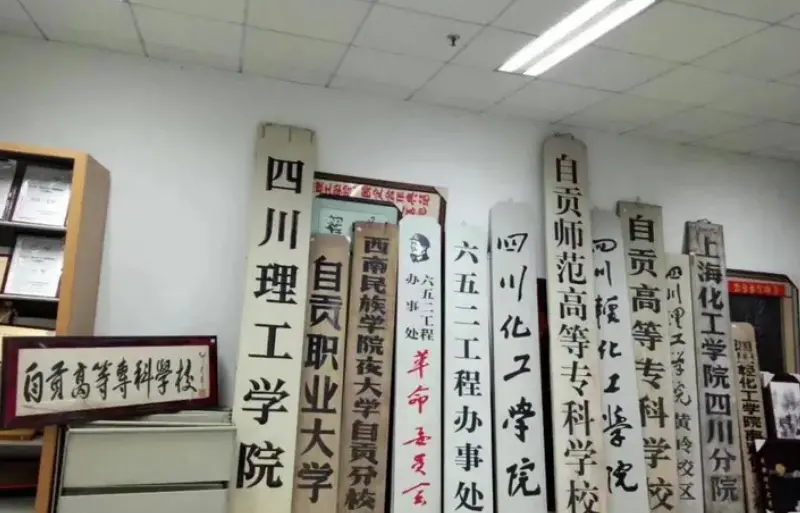 四川理工学院
自贡职业大学
西南民族学院夜大学自贡分校
六五二工程
办事处
革命委员会
六五二工程办事处
四川化工学院
自贡师范高等专科学校
四川轻化工学院
自贡高等专科学校
四川理工学院黄岭校区
上海化工学院四川分院
自贡高等專科学校